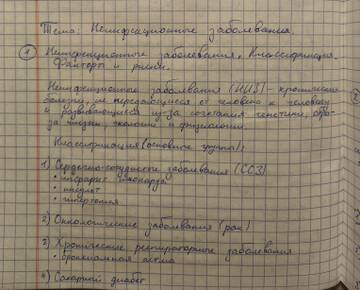 Тема: Неинфекционные заболевания.
1 Неинфекционные заболевания. Классификация.
Факторы и риски.
Неинфекционные заболевания (НИЗ) - хронические
болезни, не передающиеся от человека к человеку
и развивающиеся из-за сочетания генетики, обра-
за жизни, экологии и физиологии.
Классификация (основные группы):
1) Сердечно-сосудистые заболевания (ССЗ)
• инфаркт миокарда
• инсульт
• гипертония
2) Онкологические заболевания (рак)
3) Хронические респираторные заболевания
• бронхиальная астма
4) Сахарный диабет